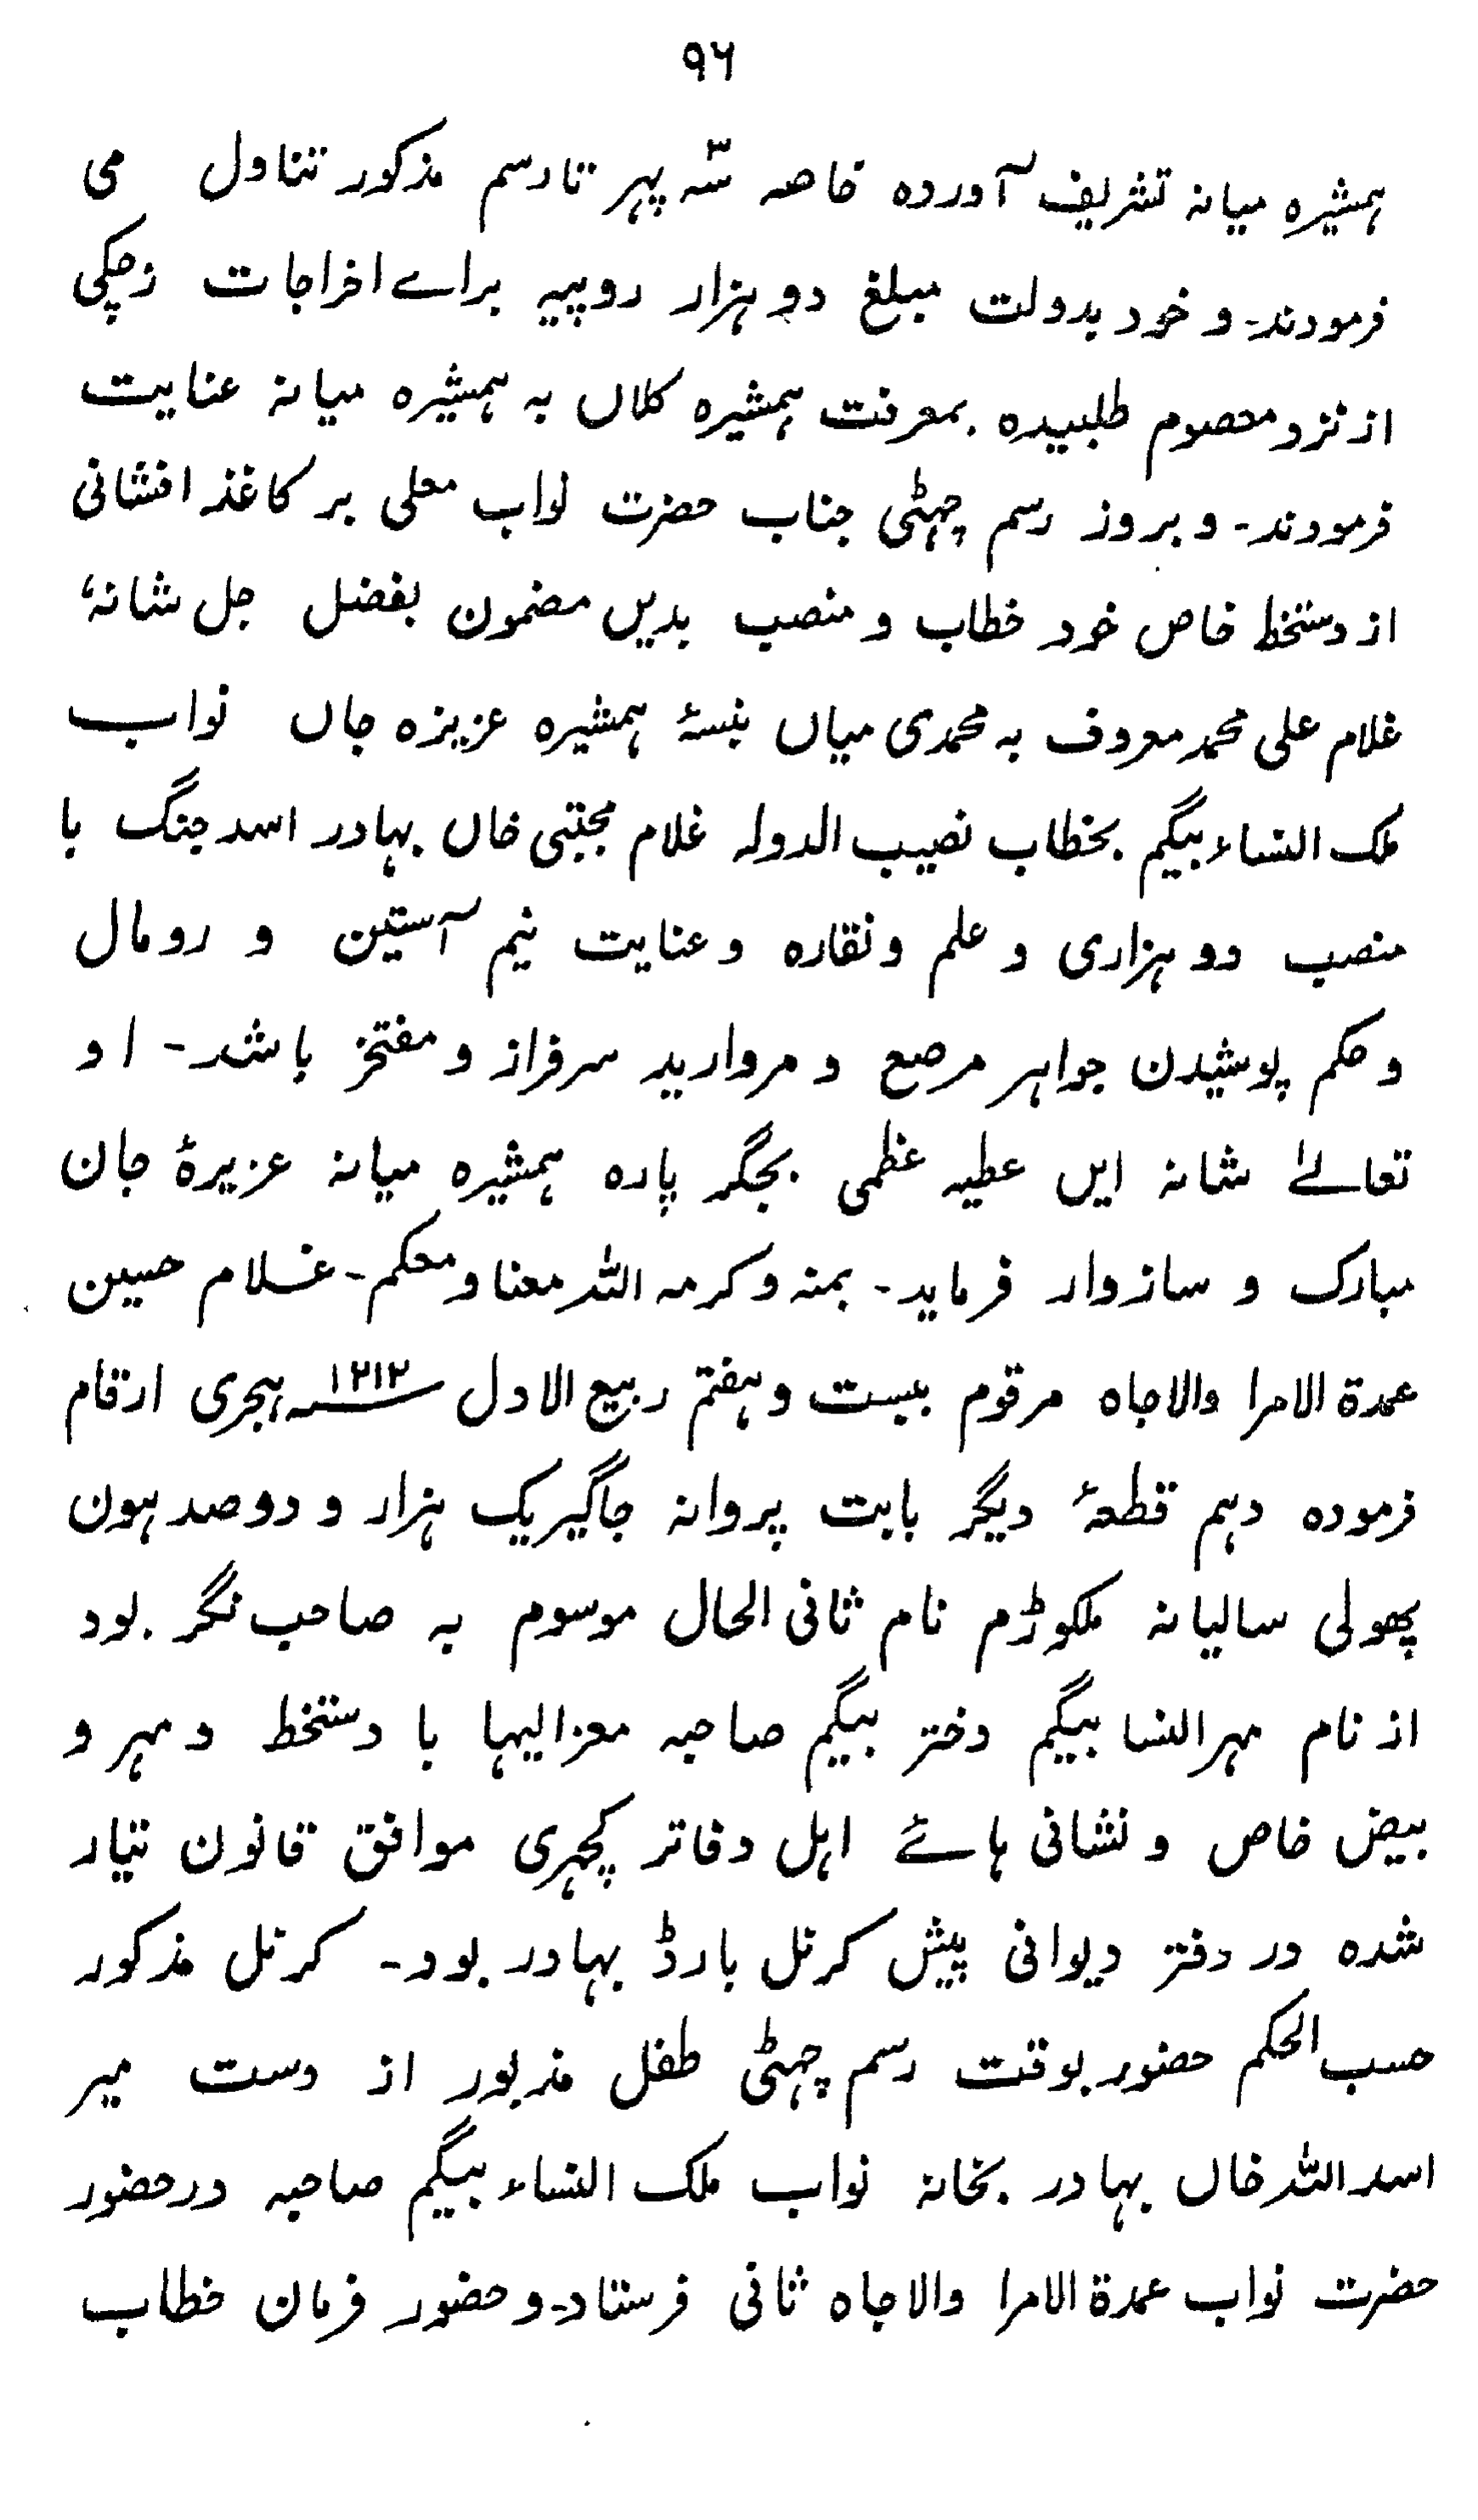 ۹۶
ہمشیرہ میانہ تشریف آوردہ خاصہ سہ پہر تا رسم مذکور تناول می
فرمودند۔ و خود بدولت مبلغ دو ہزار روپیہ براے اخراجات زچگی
از نزد معصوم طلبیدہ بمعرفت ہمشیرہ کلاں بہ ہمشیرہ میانہ عنایت
فرمودند۔ و بروز رسم چھٹی جناب حضرت نواب معلی بر کاغذ افشانی
از دستخط خاص خود خطاب و منصب بدیں مضمون بفضل جل شانہٗ
غلام علی محمد معروف بہ محمدی میاں بنسۂ ہمشیرہ عزیزہ جاں نواب
ملک النساء بیگم بخطاب نصیب الدولہ غلام مجتبی خاں بہادر اسد جنگ با
منصب دو ہزاری و علم و نقارہ و عنایت نیم آستین و رومال
و حکم پوشیدن جواہر مرصع و مروارید سرفراز و مفتخر باشد۔ او
تعالےٰ شانہ ایں عطیہ عظمی بجگر پارہ ہمشیرہ میانہ عزیزۂ جان
مبارک و سازوار فرماید۔ بمنہ و کرمہ اللہ معنا و معکم۔ غلام حسین
عمدۃ الامرا والاجاہ مرقوم بیست و ہفتم ربیع الاول ۱۲۱۲؁ ہجری ارقام
فرمودہ دہم قطعۂ دیگر بابت پروانہ جاگیر یک ہزار و دو صد ہون
پھولی سالیانہ ملکوڑم نام ثانی الحال موسوم بہ صاحب نگر بود
از نام مہر النسا بیگم دختر بیگم صاحبہ معزالیہا با دستخط و مہر و
بیض خاص و نشانی ہاے اہل دفاتر کچہری موافق قانون تیار
شدہ در دفتر دیوانی پیش کرنل بارڈ بہادر بود۔ کرنل مذکور
حسب الحکم حضور بوقت رسم چھٹی طفل مذبور از دست میر
اسد اللہ خاں بہادر بخانہ نواب ملک النساء بیگم صاحبہ در حضور
حضرت نواب عمدۃ الامرا والاجاہ ثانی فرستاد۔ و حضور فرمان خطاب